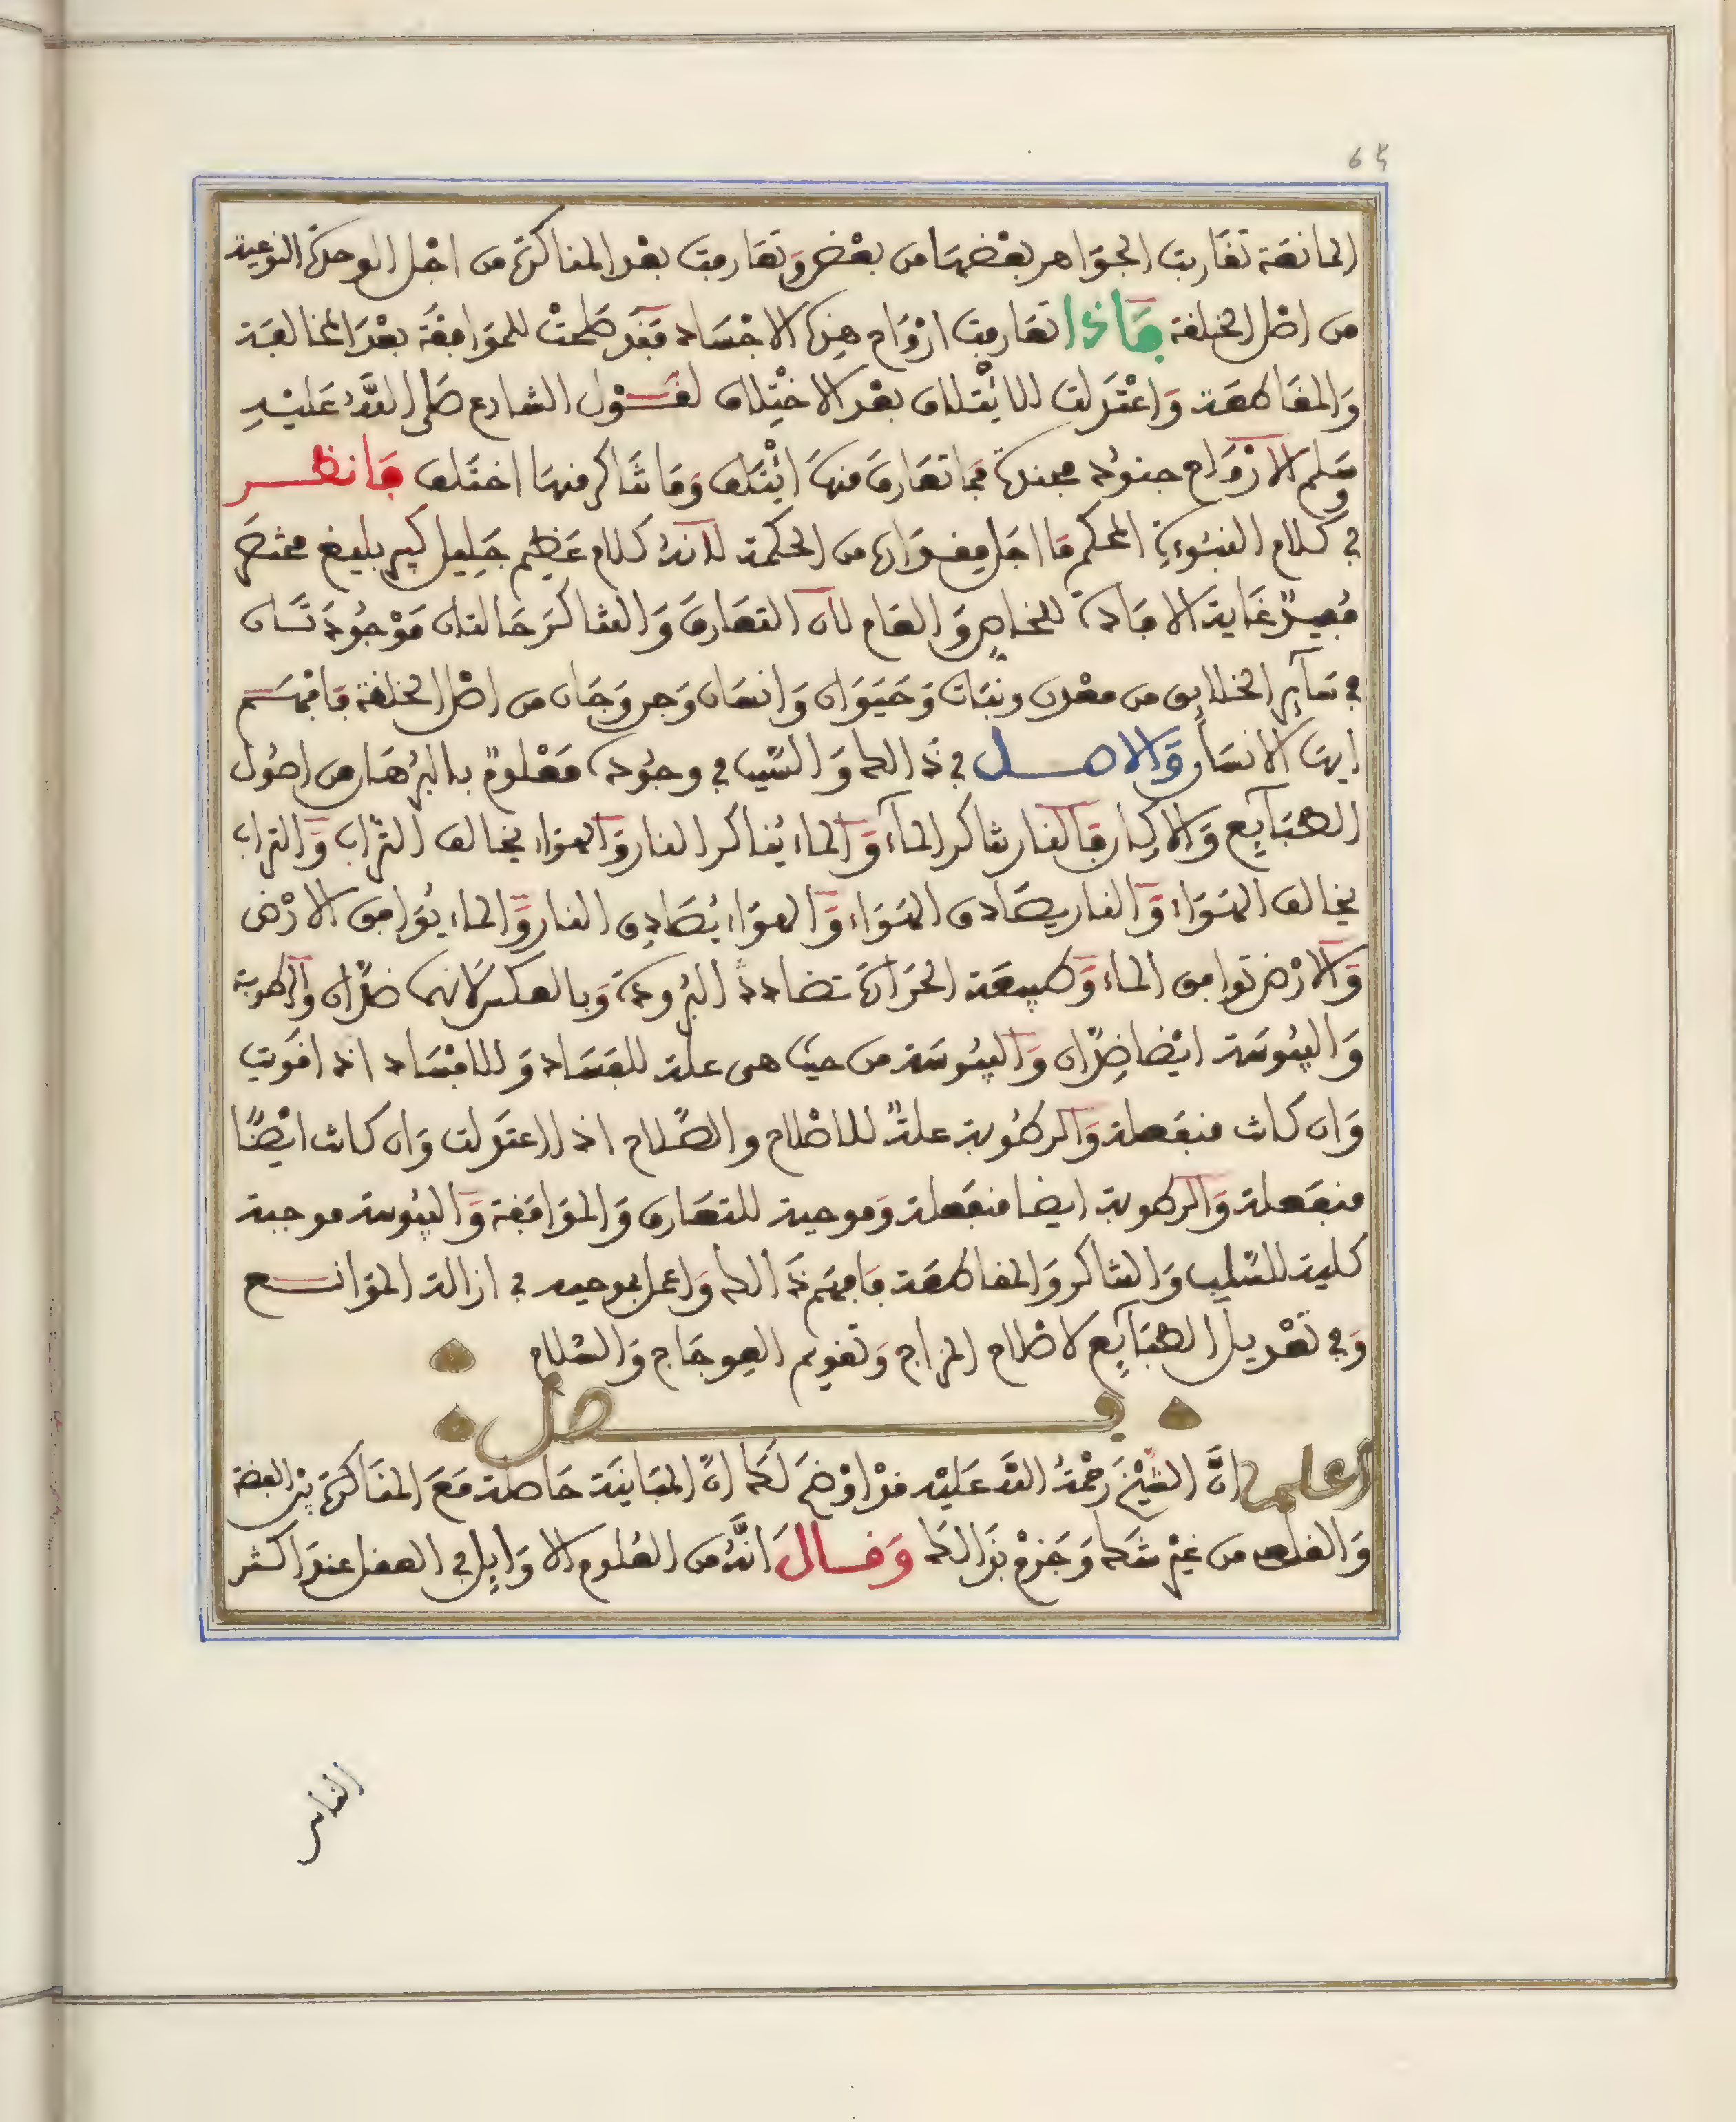 65
المانعة تقاربت الجواهر بعضها من بعض وتعارفت بعد المناكرة من اجل الوحدة النوعية
من اصل الخلقة فاذا تعارفت ارواح هذه الاجساد فقد صلحت للموافقة بعد المخالفة
والمقاطعة واعتدلت للائتلاف بعد الاختلاف لقول الشارع صلى الله عليه
وسلم الارواح جنود مجندة فما تعارف منها ايتلف وما تناكر منها اختلف فانظر
في كلام النبوءة المحكم ما اجل مقداره من الحكمة لانه كلام عظيم جليل كبير بليغ مختصر
مفيد غاية الافادة للخاص والعام لان التعارف والتناكر حالتان موجودتان
في سآير الخلايق من معدن ونبات وحيوان وانسان وجن وجان من اصل الخلقة فافهم
ايها الانسان والاصل في ذالك والسبب في وجوده معلوم بالبرهان من اصول
الطبآيع والاركان فالنار تناكر المآء والماء يناكر النار والهواء يخالف التراب والتراب
يخالف الهواء والنار يصادق الهواء والهواء يصادق النار والماء يوافق الارض
والارض توافق الماء وطبيعة الحرارة تضادد البرودة وبالعكس لانهما ضدان والرطوبة
واليبوسة ايضا ضدان واليبوسة من حيث هى علة للفساد وللافساد اذا قويت
وان كانت منفعلة والرطوبة علة للاصلاح والصلاح اذا اعتدلت وان كانت ايضا
منفعلة والرطوبة ايضا منفعلة وموجبة للتعارف والموافقة واليبوسة موجبة
كلية للسلب والتناكر والمقاطعة فافهم ذالك واعمل بموجبه في ازالة الموانع
وفي تعديل الطبآيع لاصلاح المزاج وتقويم العوجاج والسلام
فصل
اعلم ان الشيخ رحمة الله عليه قد اوضح لك ان المباينة حاصلة مع المناكرة بين الفضة
والقلعى من غير شك وجزم بذالك وقال انه من العلوم الاوايل في العقل عند اكثر
الناس